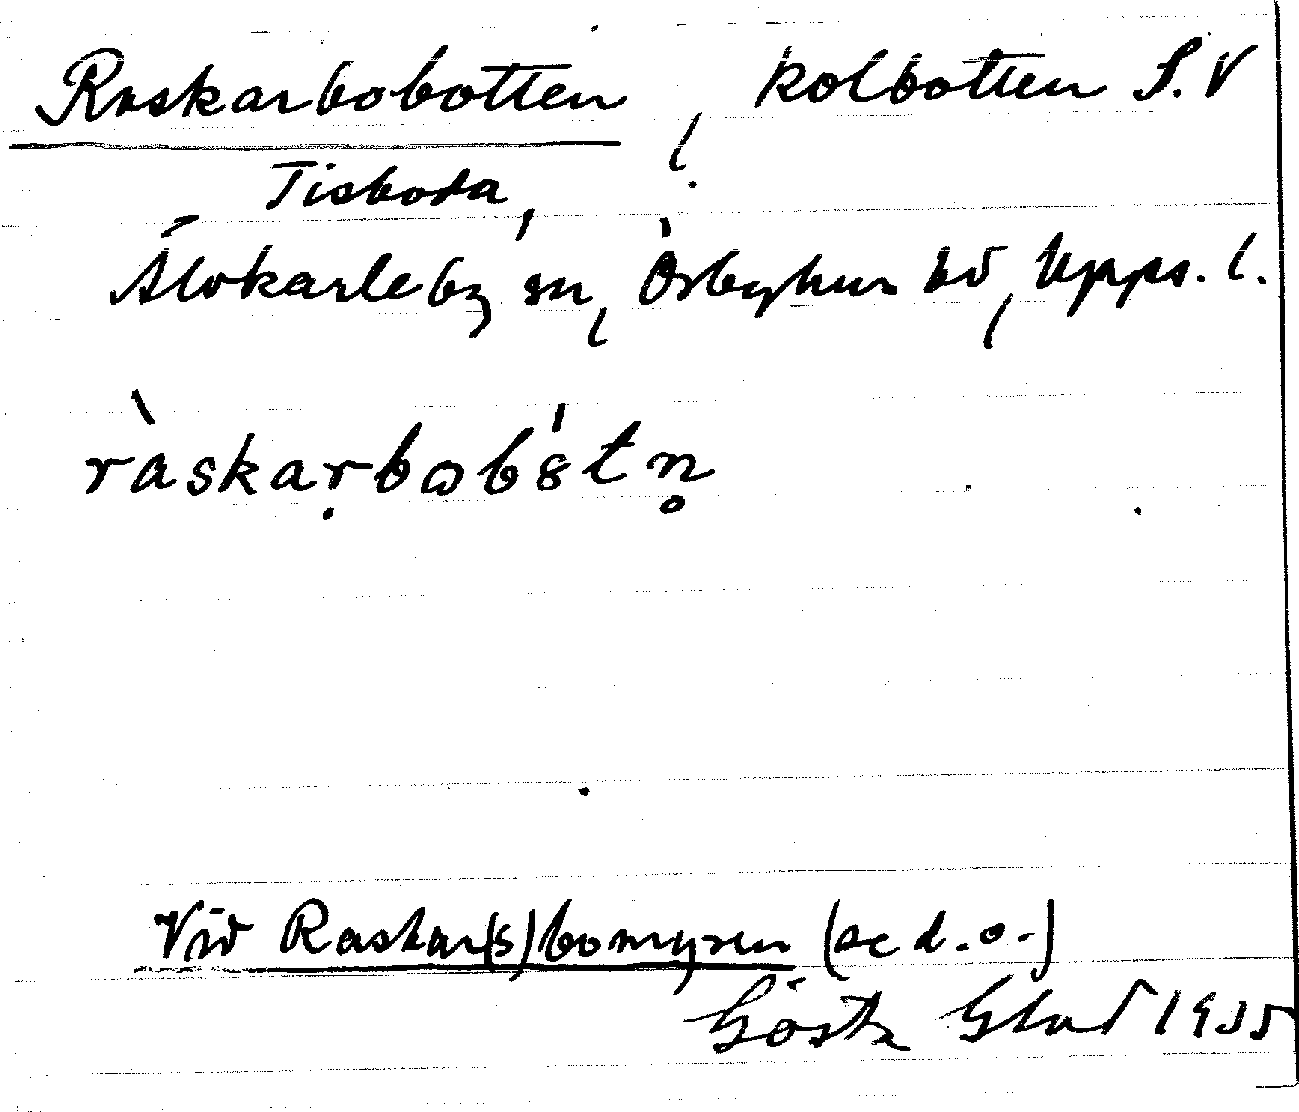 Raskarbobotten, kolbotten S.V
Tisboda,
Älvkarleby sn, Örbyhus hd, Upps. l.
ràskarbωbó̀tn̥
Vid Raskar(s)bomyren (se d.o.)
Gösta Glad 1935